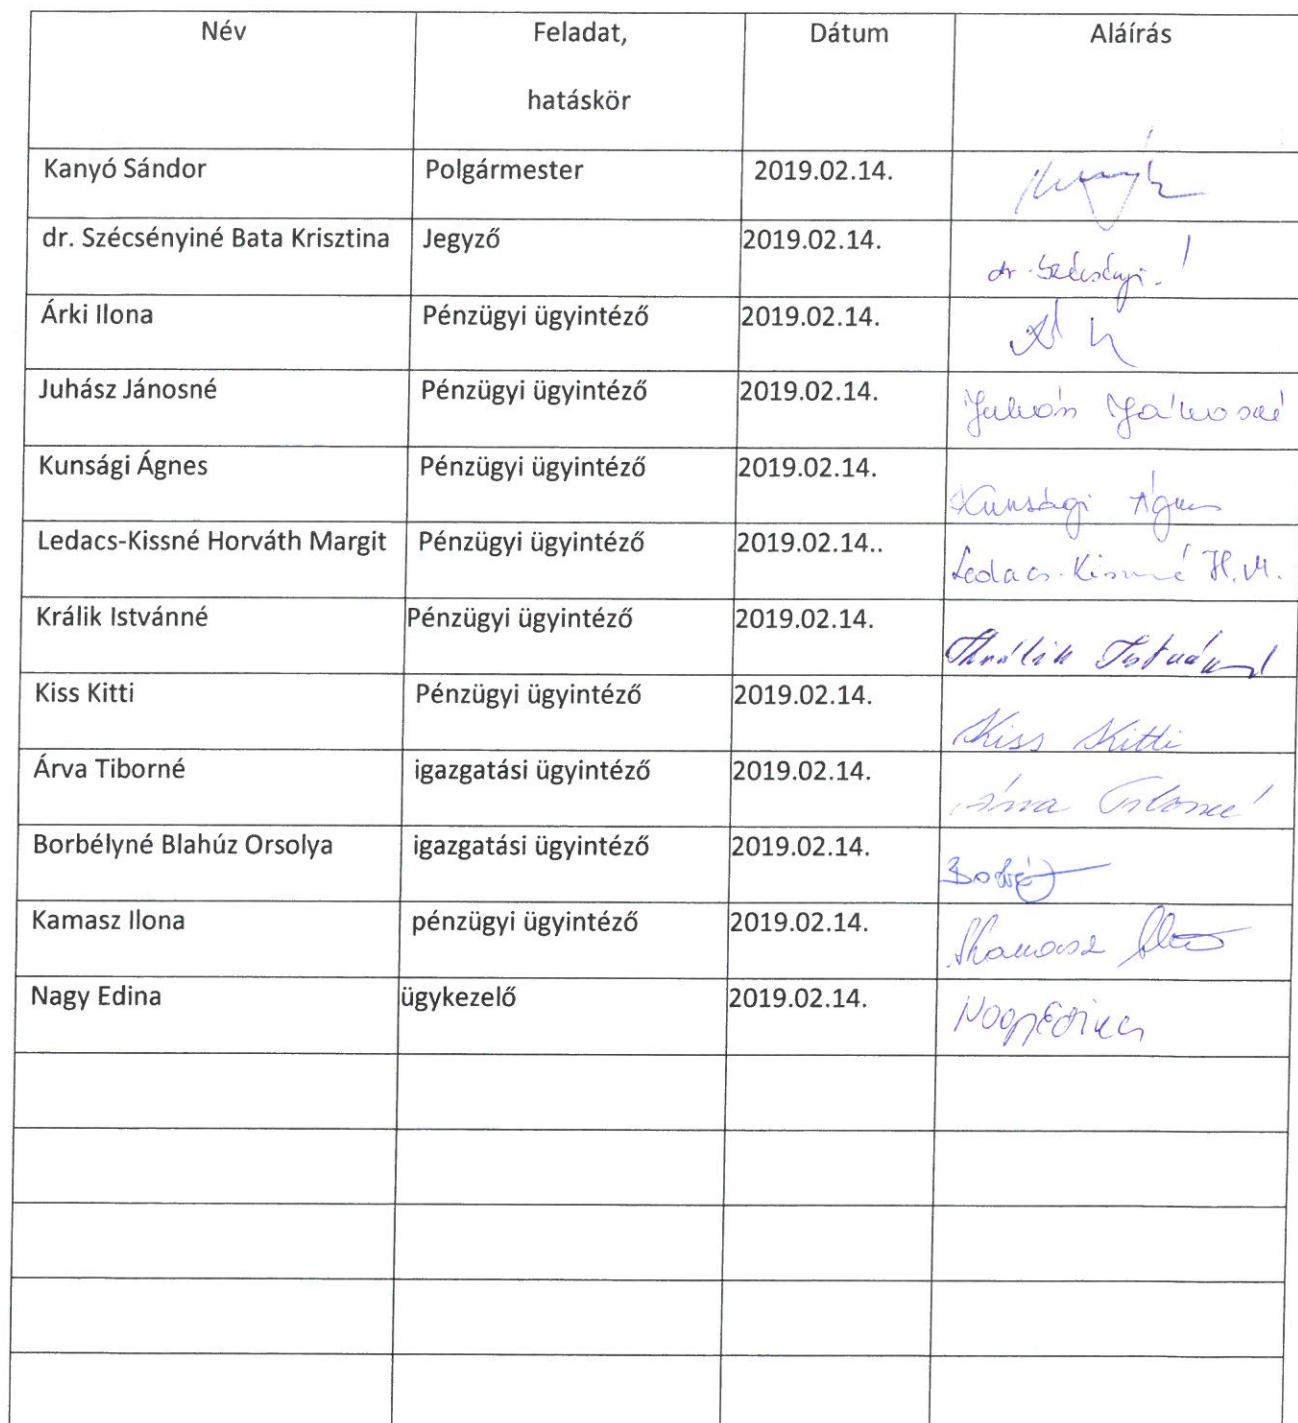 Név Feladat, Dátum Aláírás
hatáskör
Kanyó Sándor Polgármester 2019.02.14.
dr. Szécsényiné Bata Krisztina Jegyző 2019.02.14. dr. Szécsényi
Árki Ilona Pénzügyi ügyintéző 2019.02.14.
Juhász Jánosné Pénzügyi ügyintéző 2019.02.14. Juhász Jánosné
Kunsági Ágnes Pénzügyi ügyintéző 2019.02.14. Kunsági Ágnes
Ledacs-Kissné Horváth Margit Pénzügyi ügyintéző 2019.02.14.. Ledacs-Kissné H.M.
Králik Istvánné Pénzügyi ügyintéző 2019.02.14. Králik Istvánné
Kiss Kitti Pénzügyi ügyintéző 2019.02.14. Kiss Kitti
Árva Tiborné igazgatási ügyintéző 2019.02.14. Árva Tiborné
Borbélyné Blahúz Orsolya igazgatási ügyintéző 2019.02.14.
Kamasz Ilona pénzügyi ügyintéző 2019.02.14. Kamasz Ilona
Nagy Edina ügykezelő 2019.02.14. Nagy Edina